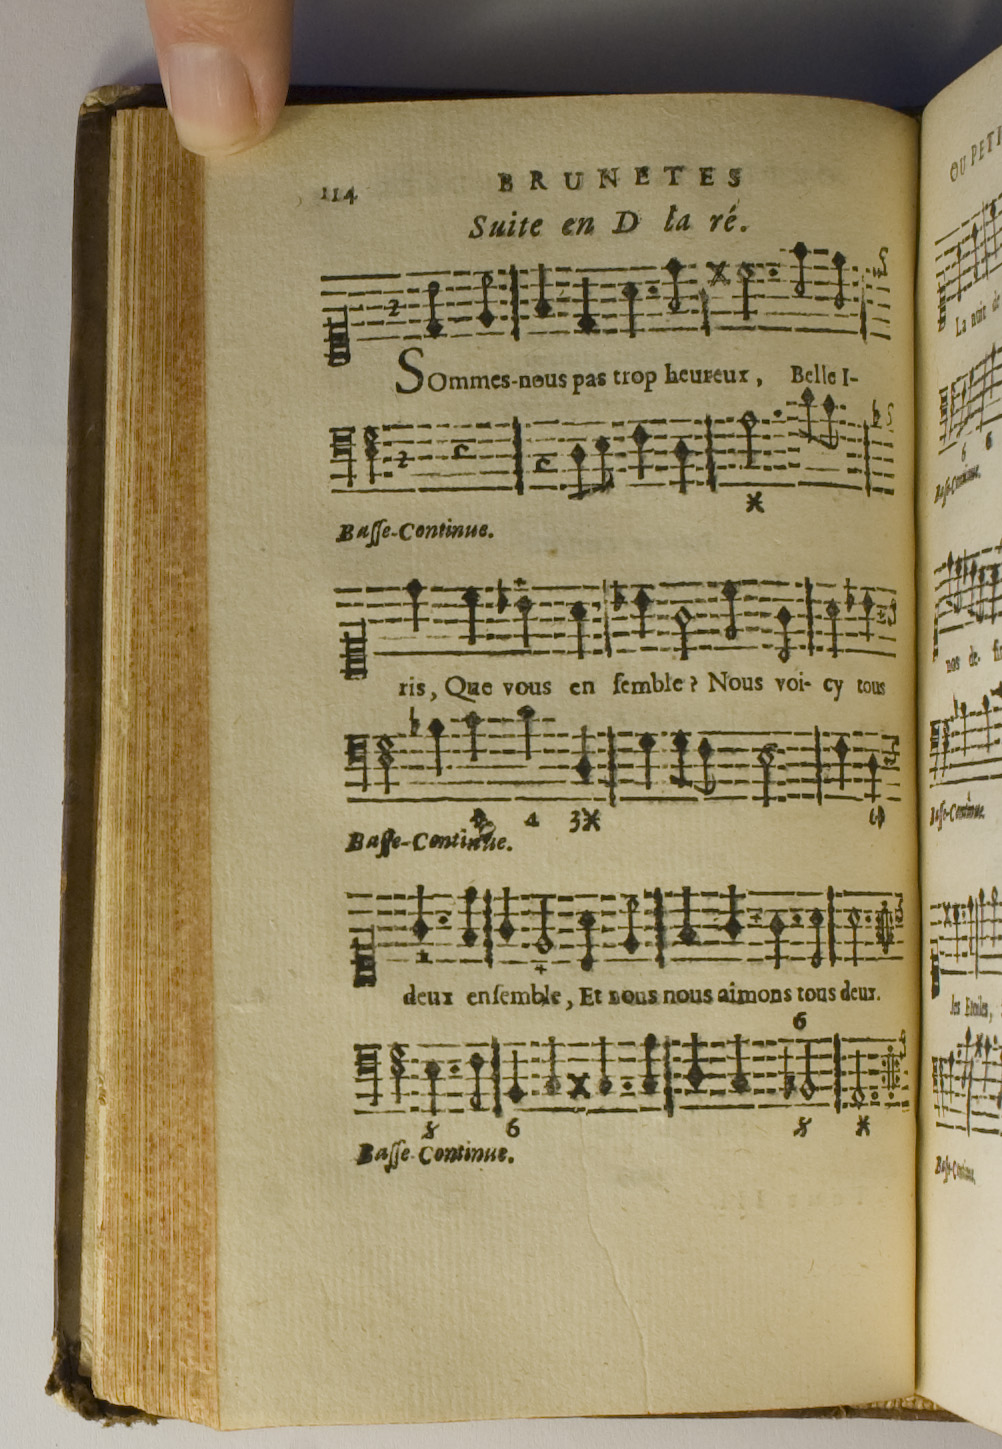 114 BRUNETES
Suite en D la ré.
SOmmes-nous pas trop heureux, Belle I-
Baſſe-Continue.
ris, Que vous en ſemble? Nous voi- cy tous
4 3
Baſſe-Continue.
deux enſemble, Et nous nous aimons tous deux.
6
6
Baſſe-Continue.
OU PETI
La nuit de
6 6
Baſſe-Continue.
nos de- ſi
Baſſe-Continue.
les Etoiles,
Baſſe-Continue.